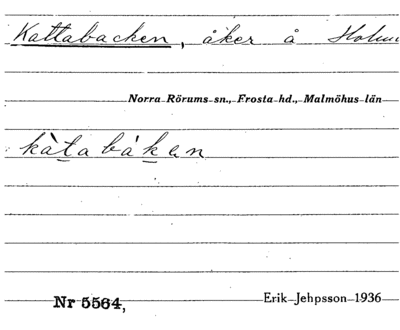 Kattabacken, åker å
Norra Rörums sn., Frosta hd., Malmöhus län
kàtabákan
Nr 5564,
Erik Jehpsson 1936